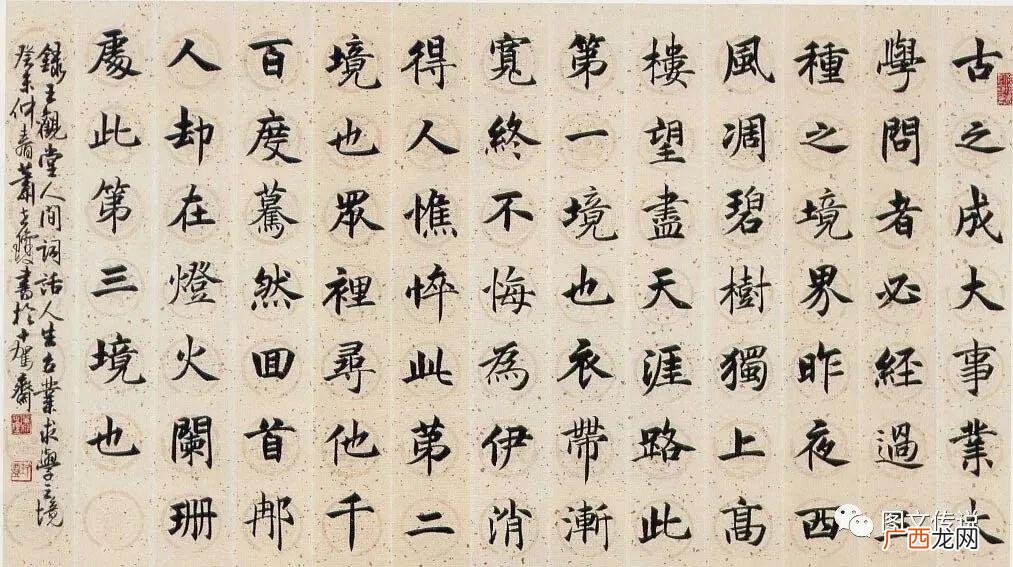 古之成大事業大
學問者必經過三
種之境界昨夜西
風凋碧樹獨上高
樓望盡天涯路此
第一境也衣帶漸
寬終不悔為伊消
得人憔悴此第二
境也眾裡尋他千
百度驀然回首那
人却在燈火闌珊
處此第三境也
錄王觀堂人间詞話人生立業求學之境
癸未仲春蕭書於十駕齋
图文传说
广西龙网